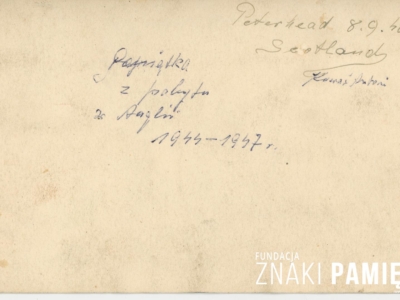 Peterhead 8.9.
Scotland
Pamiątka
z pobytu
w Anglii
1944–1947 r.
FUNDACJA
ZNAKI PAMIĘ